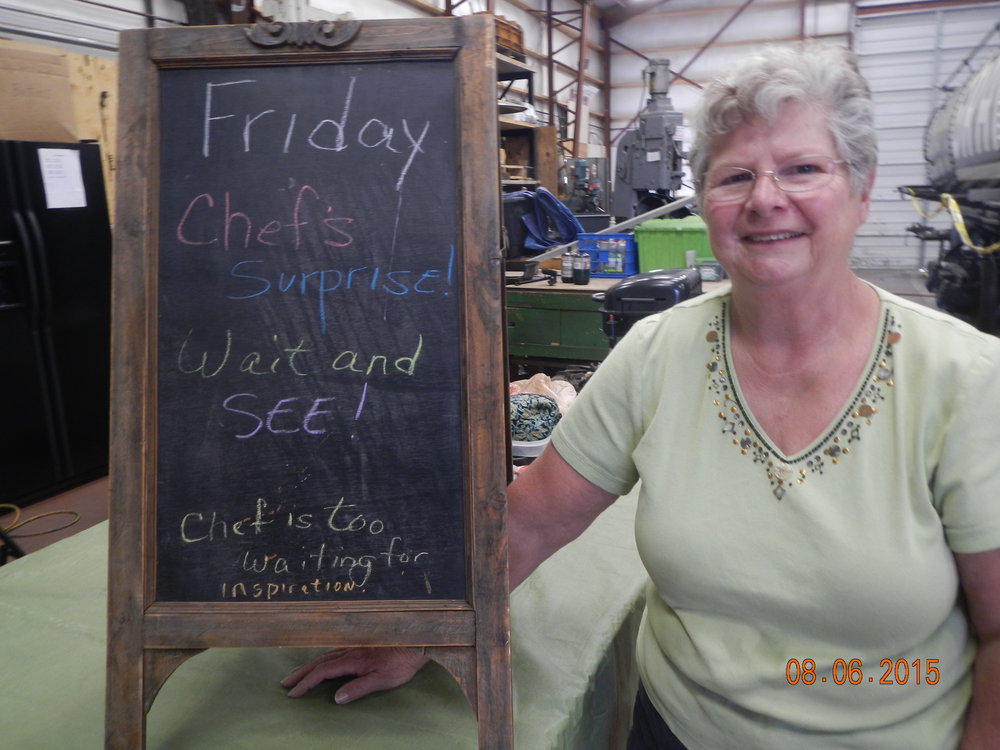 Friday
Chef's
Surprise!
Wait and
SEE!
Chef is too
waiting for
inspiration.
08.06.2015